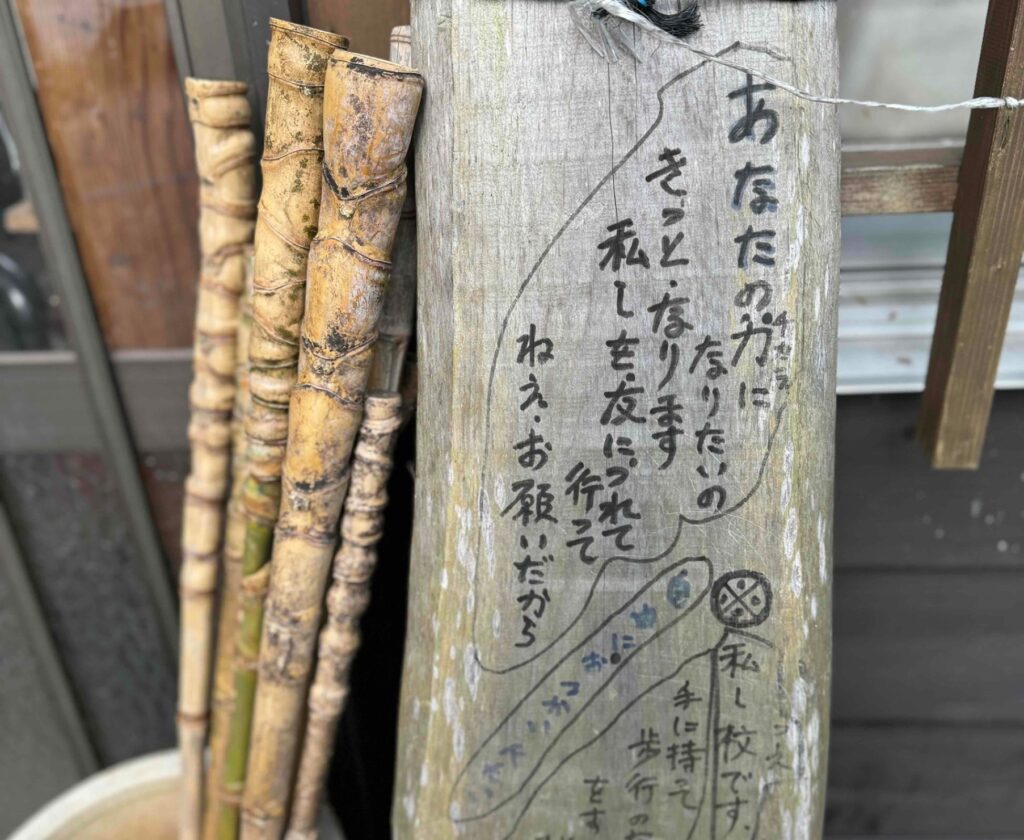 あなたの力に
チカラ
なりたいの
きっと・なります
私しを友につれて
行って
ねえ・お願いだから
自由に
おつかい下さい
私し杖です、
ツエ
手に持って
歩行の
をす